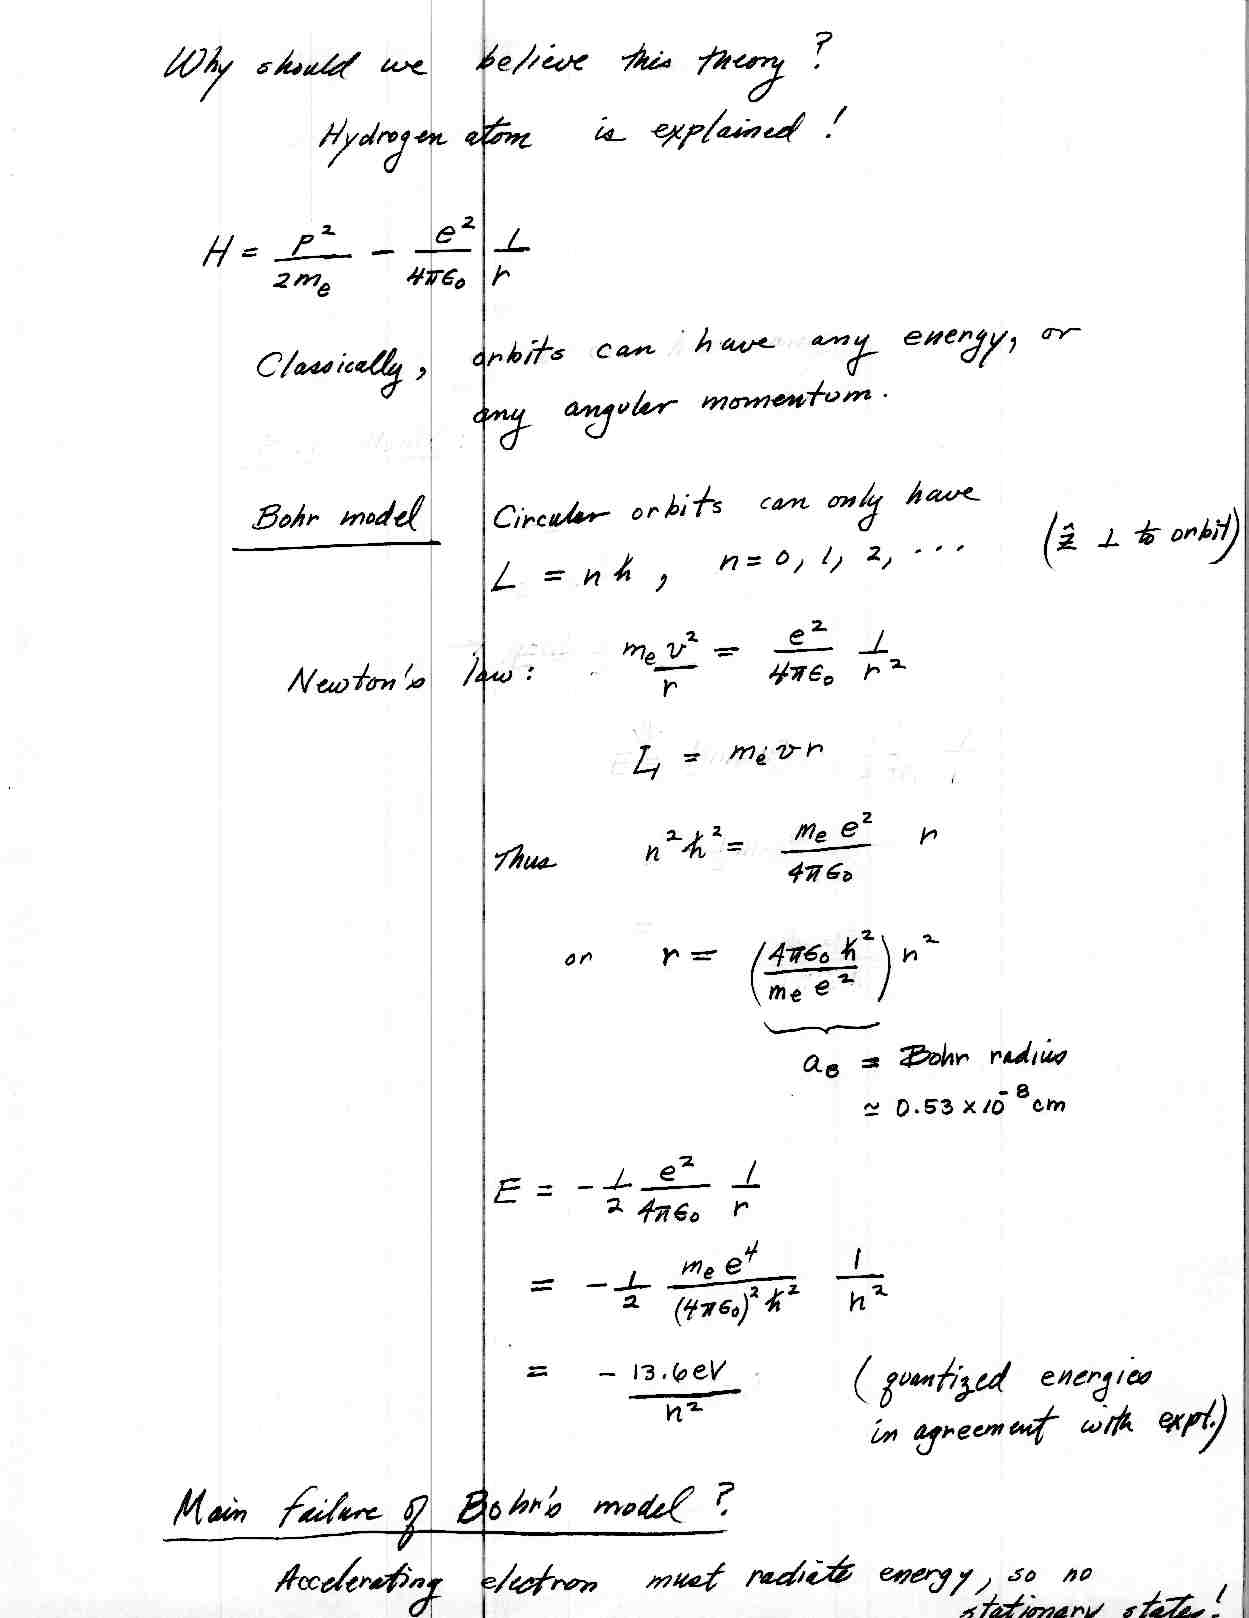 Why should we believe this theory?
Hydrogen atom is explained!
H = p²/2mₑ - e²/4πε₀ 1/r
Classically, orbits can have any energy, or
any angular momentum.
Bohr model Circular orbits can only have
L = nℏ, n = 0, 1, 2, ... (ẑ ⊥ to orbit)
Newton's law: mₑv²/r = e²/4πε₀ 1/r²
L = mₑvr
Thus n²ℏ² = mₑe²/4πε₀ r
or r = (4πε₀ℏ²/mₑe²) n²
a_B = Bohr radius
≃ 0.53 × 10⁻⁸ cm
E = -1/2 e²/4πε₀ 1/r
= -1/2 mₑe⁴/(4πε₀)²ℏ² 1/n²
= -13.6eV/n² (quantized energies
in agreement with expt.)
Main failure of Bohr's model?
Accelerating electron must radiate energy, so no
stationary states!